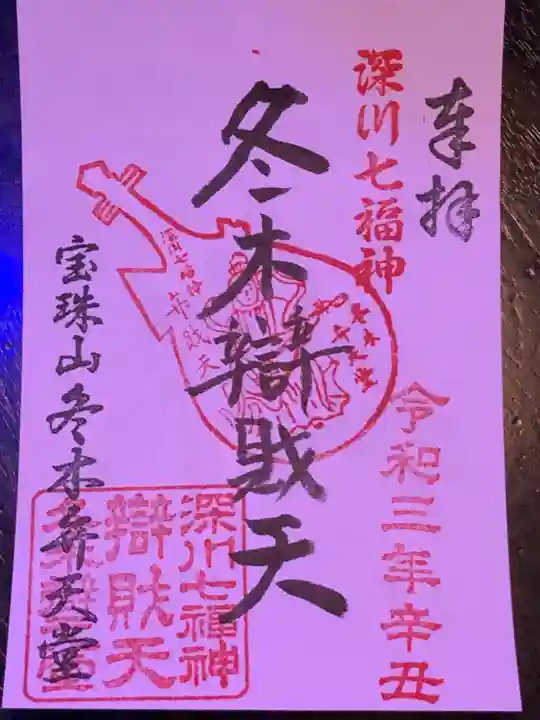 奉拝
深川七福神
令和三年辛丑
冬木辯財天
深川七福神
弁財天
冬木弁天堂
宝珠山冬木弁天堂
深川七福神
辯財天